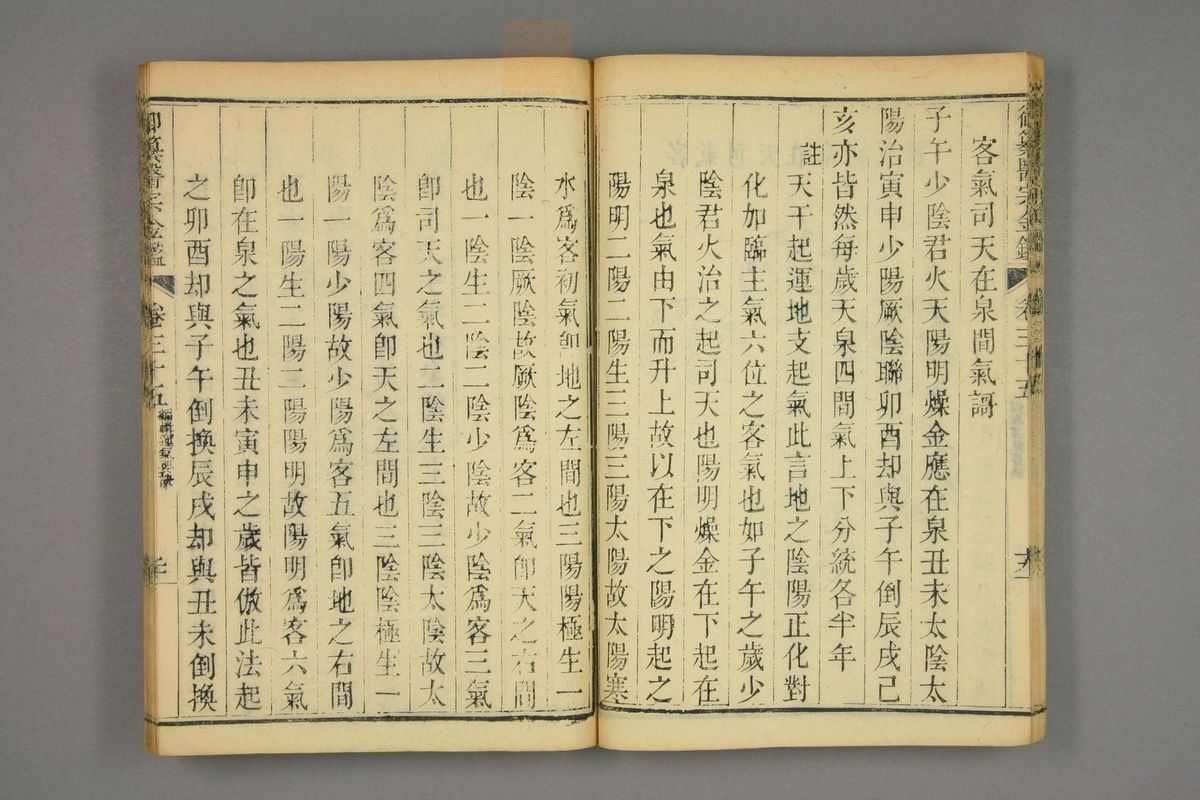 御纂醫宗金鑑 卷三十五
客氣司天在泉間氣謌
子午少陰君火天陽明燥金應在泉丑未太陰太
陽治寅申少陽厥陰聯卯酉却與子午倒辰戌己
亥亦皆然每歲天泉四間氣上下分統各半年
註天干起運地支起氣此言地之陰陽正化對
化加臨主氣六位之客氣也如子午之歲少
陰君火治之起司天也陽明燥金在下起在
泉也氣由下而升上故以在下之陽明起之
陽明二陽二陽生三陽三陽太陽故太陽寒
水爲客初氣卽地之左間也三陽陽極生一
陰一陰厥陰故厥陰爲客二氣卽天之右間
也一陰生二陰二陰少陰故少陰爲客三氣
卽司天之氣也二陰生三陰三陰太陰故太
陰爲客四氣卽天之左間也三陰陰極生一
陽一陽少陽故少陽爲客五氣卽地之右間
也一陽生二陽二陽陽明故陽明爲客六氣
卽在泉之氣也丑未寅申之歲皆倣此法起
之卯酉却與子午倒換辰戌却與丑未倒換
御纂醫宗金鑑 卷三十五 編輯運氣要訣